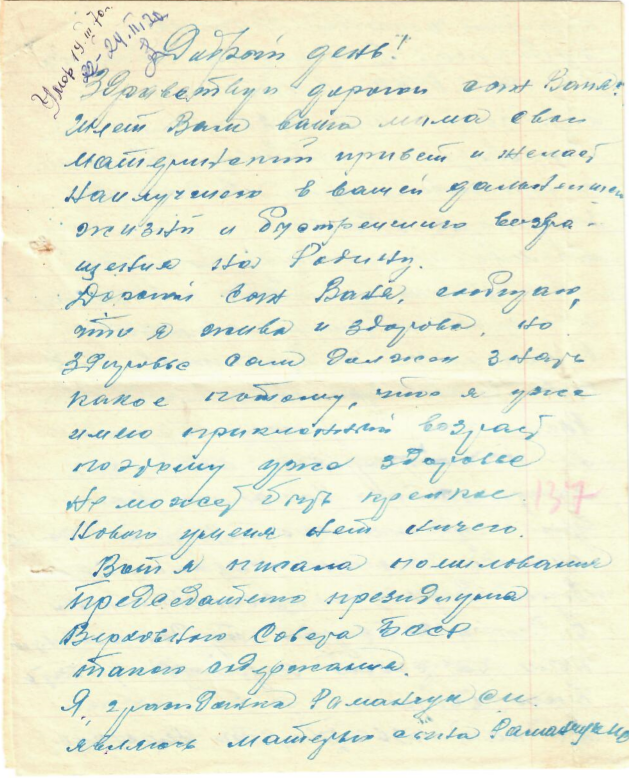 Умор 19 III 70 г.
22-24. III 70
Добрый день!
Здравствуй дорогой сын Ваня!
Шлет Вам ваша мама свой
материнский привет и желает
наилучшего в вашей дальнейшей
жизни и быстрейшего возвра-
щения на Родину.
Дорогой сын Ваня, сообщаю,
что я жива и здорова, но
здоровье сам должен знать
какое потому, что я уже
имею преклонный возраст
поэтому уже здоровье
не может быть крепкое.
137
Нового у меня нет ничего.
Вот я писала помилования
председателю президиума
Верховного Совета БССР
такого содержания.
Я, гражданка Раманчук
являюсь матерью сына Раманчук